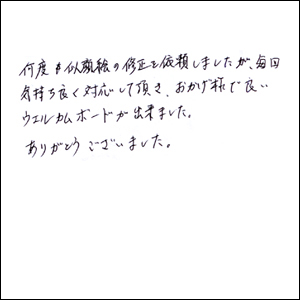 何度も似顔絵の修正を依頼しましたが、毎回
気持ち良く対応して頂き、おかげ様で良い
ウエルカムボードが出来ました。
ありがとうございました。